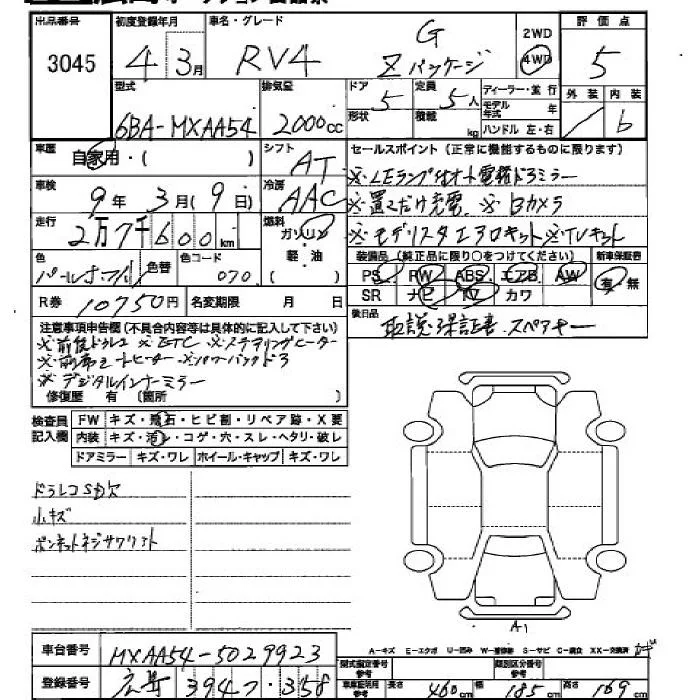 出品番号 初度登録年月 車名・グレード G 2WD 評価点
3045 4 3月 RV4 Zパッケージ 4WD 5
型式 排気量 ドア 5 定員 5人 ディーラー・並行 外装 内装
6BA-MXAA54 2000cc 形状 積載 kg モデル年式 年 b
ハンドル 左・右
車歴 自家用・( ) シフト AT セールスポイント(正常に機能するものに限ります)
車検 9年 3月(9日) 冷房 AAC ※LEランプ付オート電格ドアミラー
※置くだけ充電 ※Bカメラ
走行 2万7千600km 燃料 ガソリン ※モデリスタエアロキット※TVキット
色 色替 色コード 070 軽・油 ( ) 装備品(純正品に限り○をつけてください) 新車保証書
PS PW ABS エアB AW 有・無
R券 10750円 名変期限 月 日 SR ナビ TV カワ
注意事項申告欄(不具合内容等は具体的に記入して下さい) 後日品 取説・保証書 スペアキー
※前後ドラレコ ※ETC ※ステアリングヒーター
※前席シートヒーター ※パワーバックドア
※デジタルインナーミラー
修復歴 有(箇所 )
検査員記入欄 FW キズ・飛石・ヒビ割・リペア跡・X要
内装 キズ・汚レ・コゲ・穴・スレ・ヘタリ・破レ
ドアミラー キズ・ワレ ホイール・キャップ キズ・ワレ
ドラレコSD欠
小キズ
ボンネットネジサワリアト
A1
車台番号 MXAA54-5029923
A-キズ E-エクボ U-凹み W-補修跡 S-サビ C-腐食 XX-交換済
登録番号 3947 358 型式指定番号 参考 類別区分番号 参考
車庫証明用 参考 長さ 460cm 幅 185cm 高さ 169cm